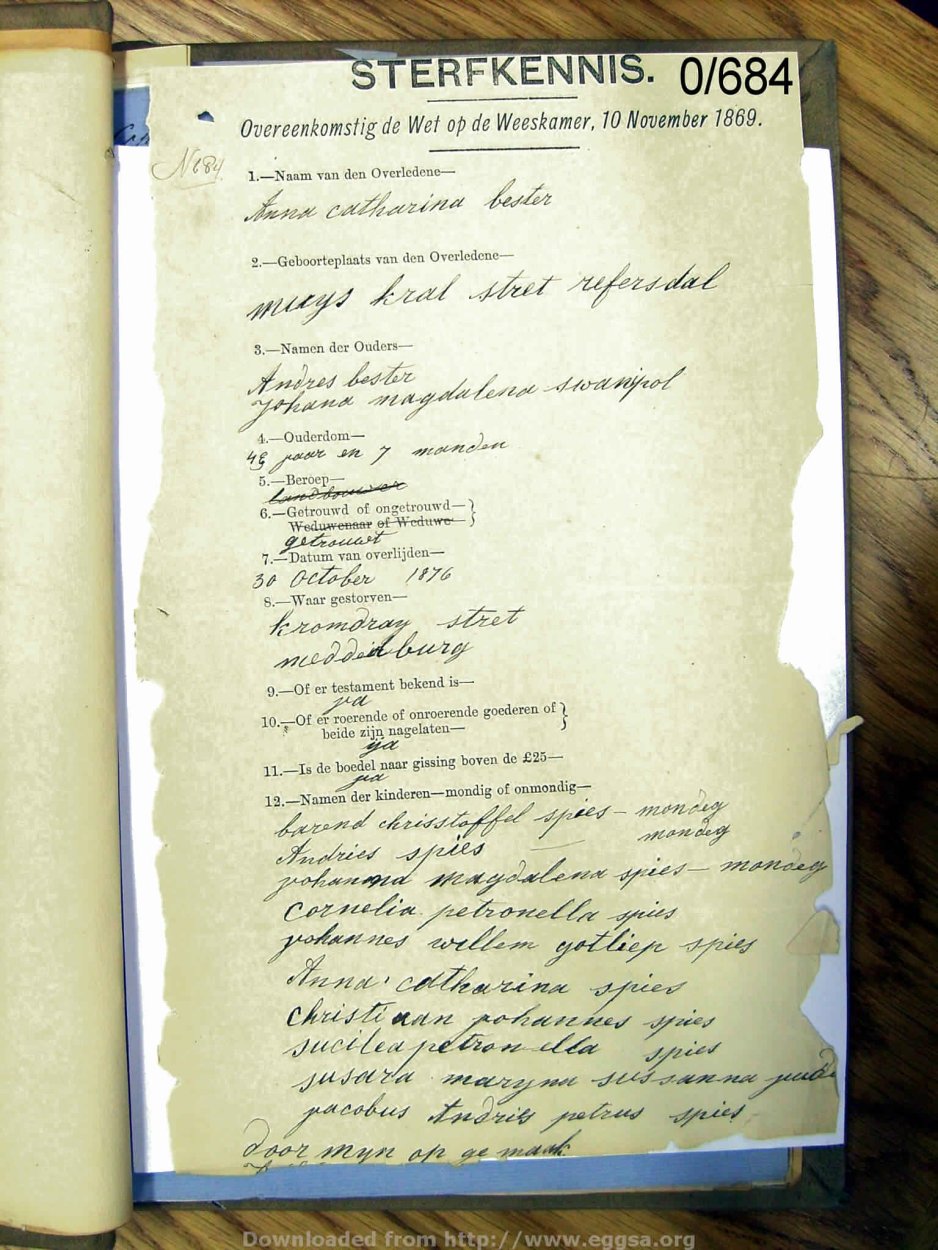 STERFKENNIS. 0/684
Overeenkomstig de Wet op de Weeskamer, 10 November 1869.
N 684
1.—Naam van den Overledene—
Anna catharina bester
2.—Geboorteplaats van den Overledene—
muys kral stret refersdal
3.—Namen der Ouders—
Andres bester
Johana magdalena swanipol
4.—Ouderdom—
jaar en 7 manden
5.—Beroep—
Landbouwer
6.—Getrouwd of ongetrouwd—}
Weduwenaar of Weduwe
getrouwt
7.—Datum van overlijden—
30 October 1876
8.—Waar gestorven—
kromdray stret
meddelburg
9.—Of er testament bekend is—
ya
10.—Of er roerende of onroerende goederen of }
beide zijn nagelaten—
ya
11.—Is de boedel naar gissing boven de £25—
ya
12.—Namen der kinderen—mondig of onmondig—
barend chrisstoffel spies – mondeg
Andries spies — mondeg
yohannna magdalena spies – mondeg
cornelia petronella spies
yohannes willem gotliep spies
Anna catharina spies
christiaan yohannes spies
sucilea petronella spies
susara maryna sussanna
yacobus Andries petrus spies
door myn op ge maak
Downloaded from http://www.eggsa.org